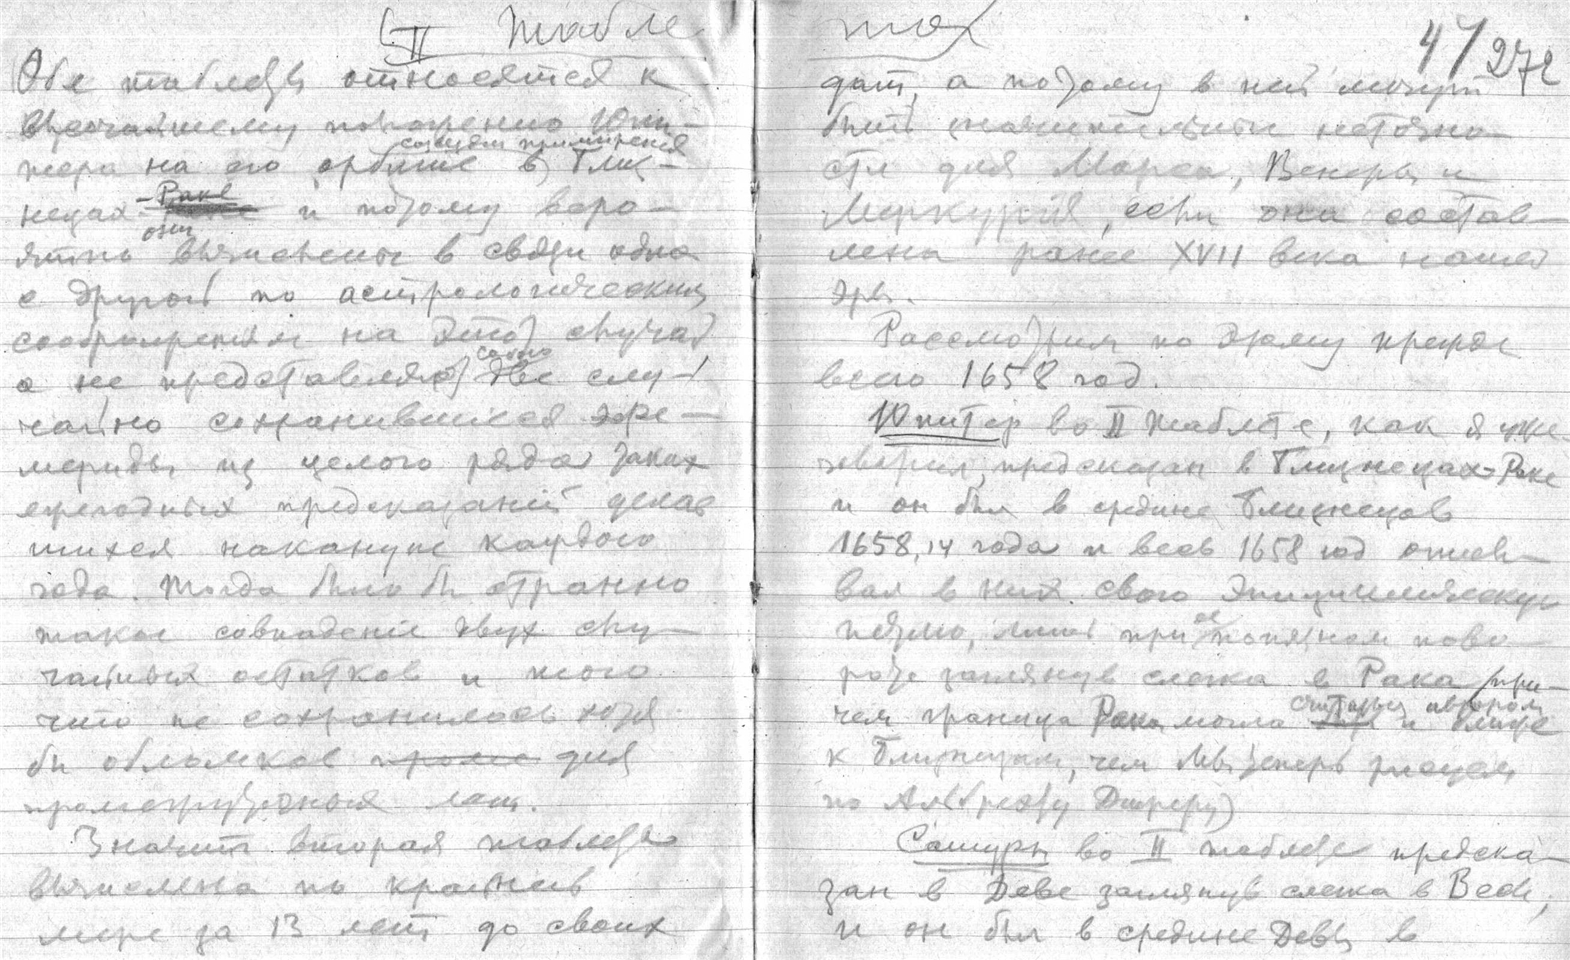 II Табле
Обе таблетки относятся к
высочайшему положению Юпи-
созвездии примирения
тера на его орбите в Близ-
нецах - Раке и потому веро-
они
ятно вычислены в связи одна
с другой по астрологическим
соображениям на этот случай
собою
а не представляют две слу-
чайно сохранившиеся эфе-
мериды из целого ряда таких
ежегодных предсказаний делав
шихся накануне каждого
года. Тогда было бы странно
такое совпадение двух слу-
чайных остатков и того
что не сохранилось хотя
бы обломков для
промежуточных лет.
Значит вторая таблетка
вычислена по крайней
мере за 13 лет до своих
тах
47/272
дат, а потому в ней могут
быть значительные неточно-
сти для Марса, Венеры и
Меркурия, если она состав-
лена ранее XVII века нашей
эры.
Рассмотрим поэтому прежде
всего 1658 год.
Юпитер во II таблетке, как я уже
говорил, предсказан в Близнецах-Раке
и он был в средине Близнецов
1658,14 года и весь 1658 год описы-
вал в них свою эпициклическую
петлю, лишь при попятном пово-
роте заглянув слегка в Рака (при-
считаться автором
чем граница Рака могла и ближе
к Близнецам, чем мы теперь рисуем
по Альбрехту Дюреру)
Сатурн во II таблетке предска-
зан в Деве заглянув слегка в Весы,
и он был в средине Девы в